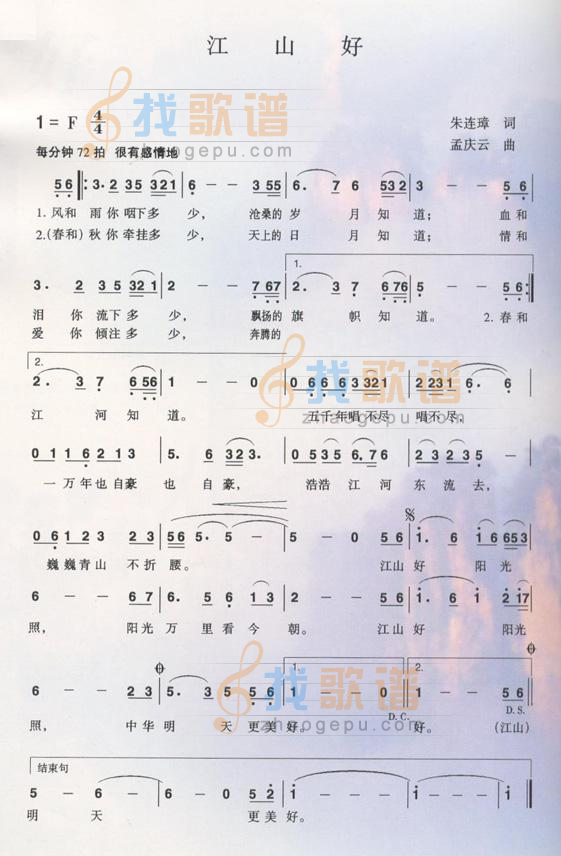 江 山 好
1= F 4/4
朱连璋 词
孟庆云 曲
每分钟 72 拍 很有感情地
找歌谱
zhaogepu.com
5 6 3· 2 3 5 3 2 1 6 - - 3 5 5 6· 7 6 5 5 3 2 3 - - 5 6
1.风和 雨你 咽下多 少, 沧桑的 岁 月 知 道; 血和
2.(春和)秋你 牵挂多 少, 天上的 日 月 知 道; 情和
1.
3· 2 3 5 3 2 1 2 - - 7 6 7 2· 3 7 6 7 6 5 - - 5 6
泪 你 流下多 少, 飘扬的 旗 帜 知 道。 2.春和
爱 你 倾注多 少, 奔腾的
2.
2· 3 7 6 5 6 1 - - 0 0 6 6 6 3 3 2 1 2 2 3 1 6· 6
江 河 知 道。 五千年唱不尽 唱不尽,
找歌谱
zhaogepu.com
0 1 1 6 2 1 3 5· 6 3 2 3· 3 5 3 5 6 7 6 2 3 2 3 5 -
一万年也自豪 也 自 豪, 浩浩 江 河 东 流 去,
0 6 1 2 3 2 3 5 6 5· 5 - 5 - 0 5 6 1· 6 1 6 6 5 3
巍巍青山 不 折 腰。 江山 好 阳 光
6 - - 6 7 6· 5 6 2 3 2 - - 5 6 1· 6 2 1 7
照, 阳光 万 里看今 朝。 江山 好 阳光
1.
2.
6 - - 2 3 5· 3 5 5 6 1 - - 0 1 - - 5 6
D.C.
D.S.
照, 中华 明 天 更美 好。 好。 (江山)
找歌谱
zhaogepu.com
结束句
5 - 6 - 6 - 0 5 2 1 - - - 1 - - 0
明 天 更美 好。